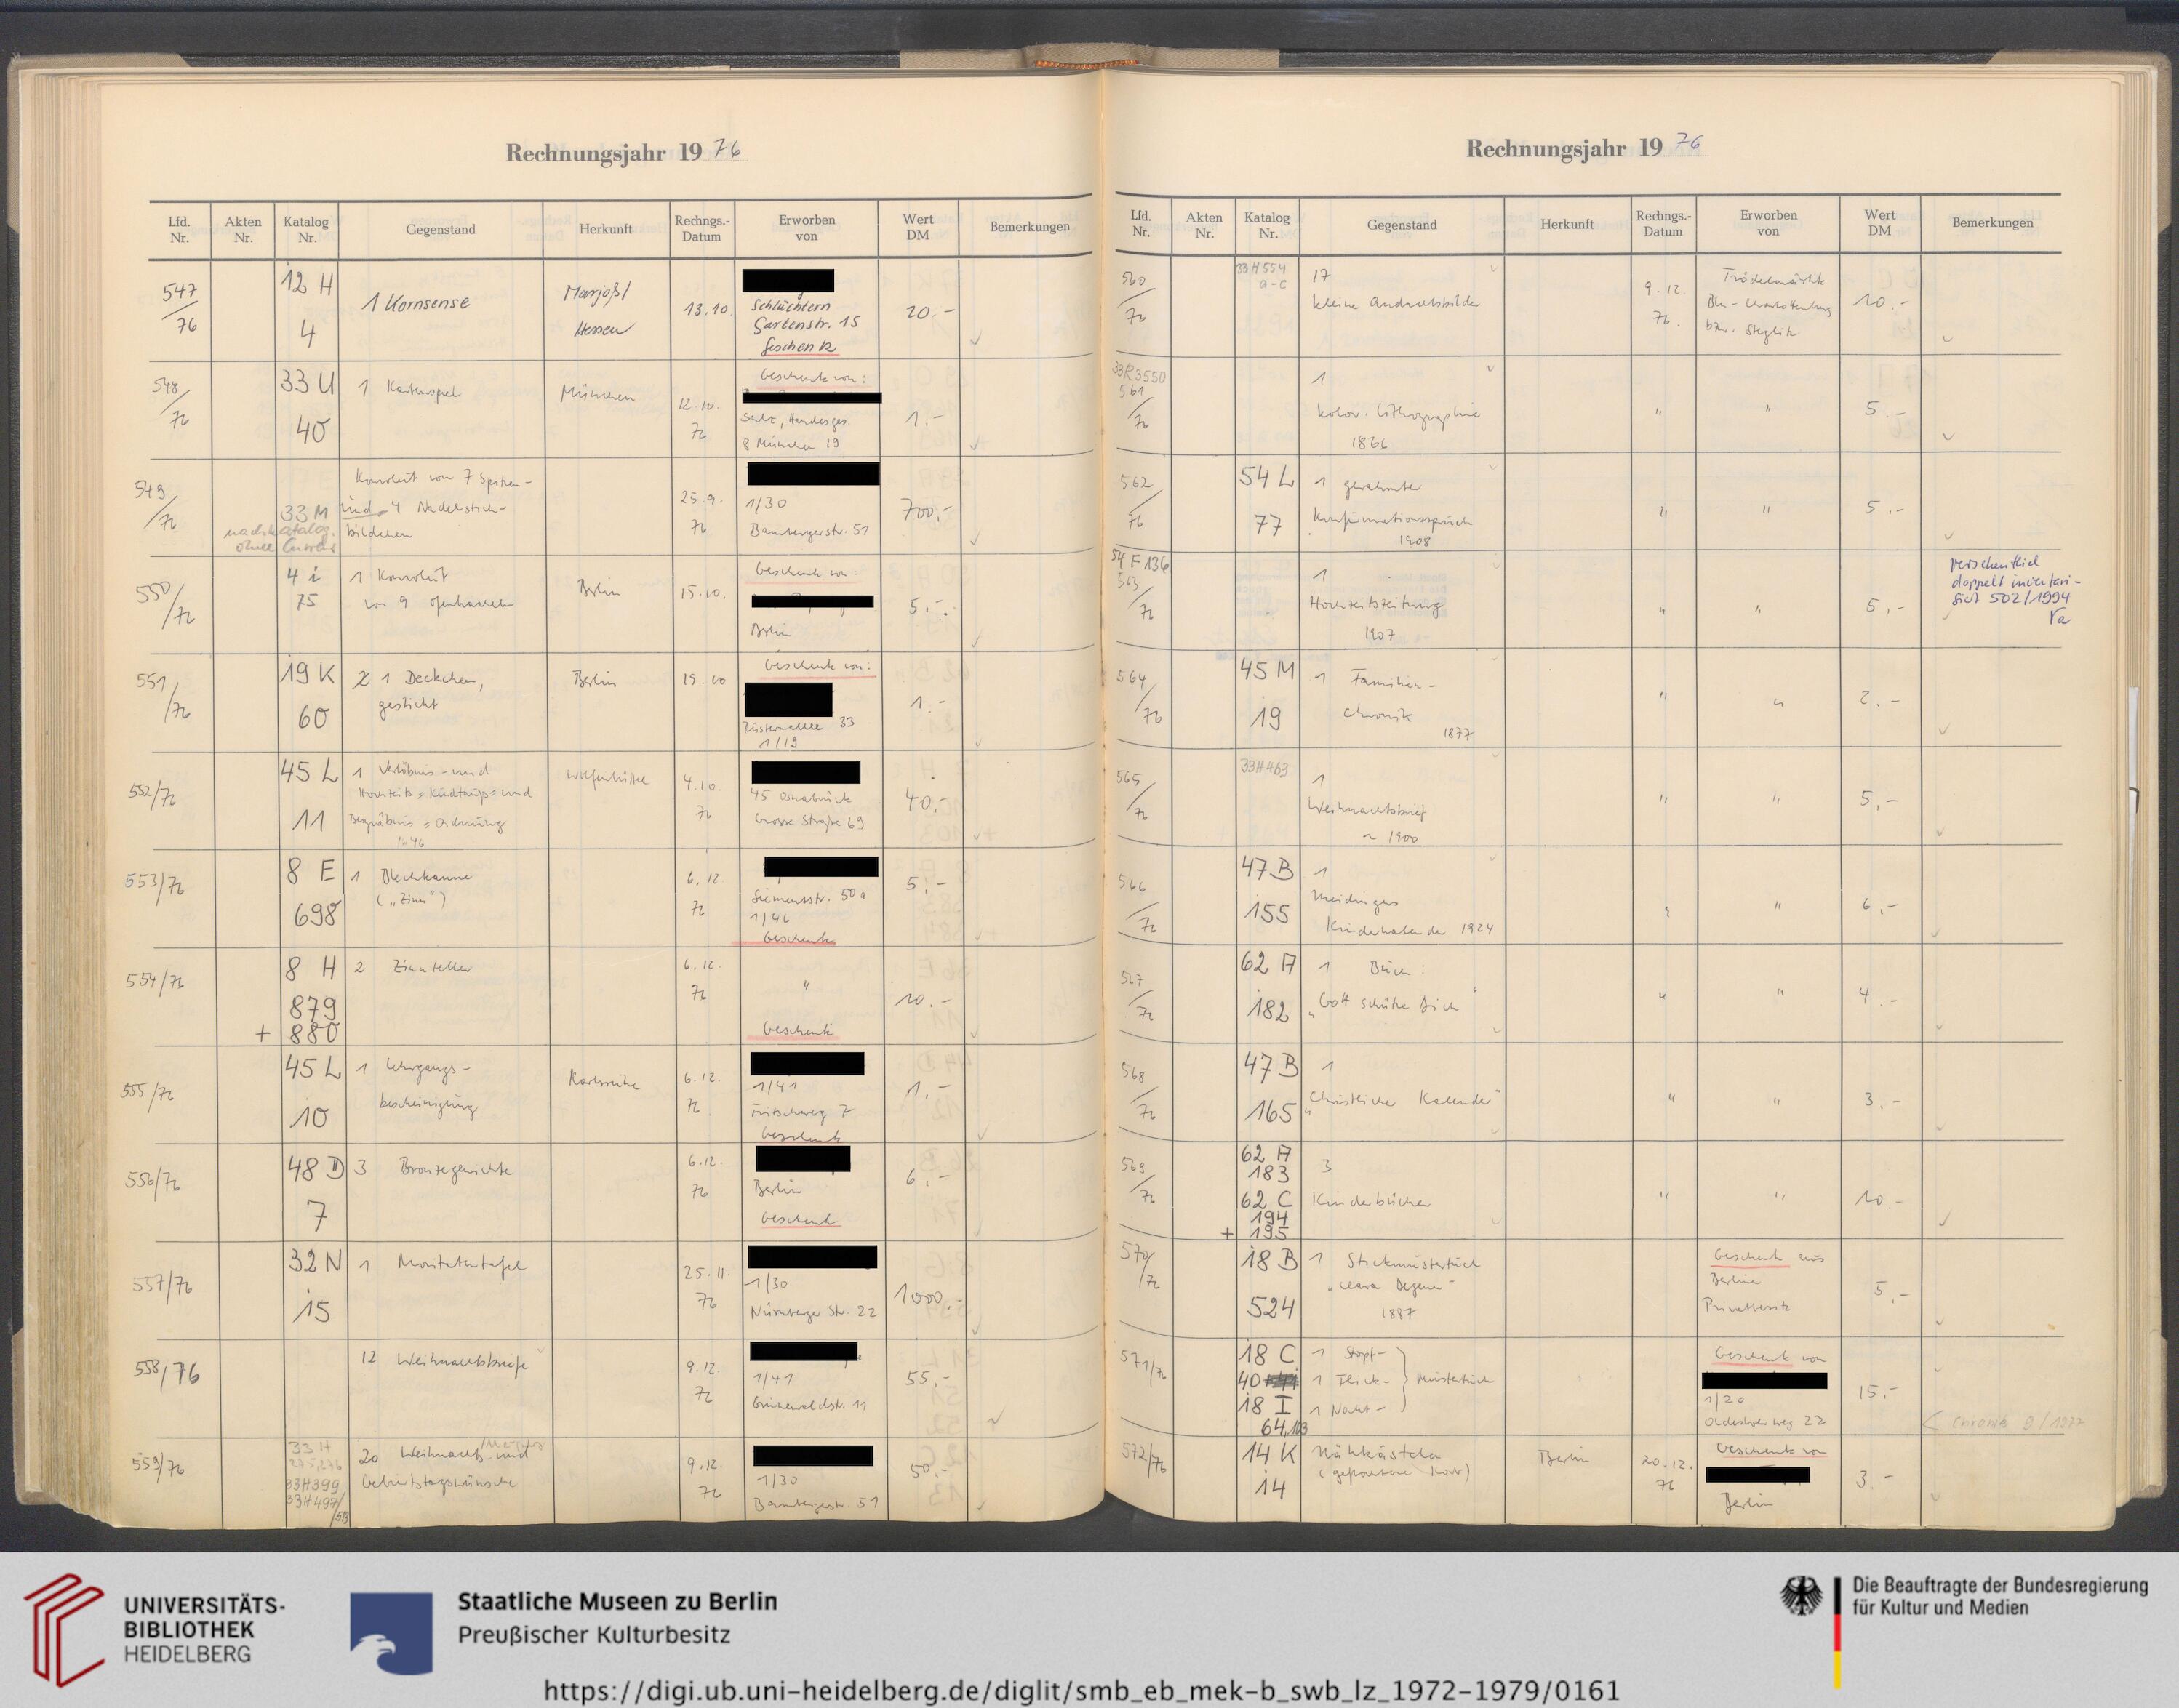 Rechnungsjahr 19 76
Lfd. Nr.
Akten Nr.
Katalog Nr.
Gegenstand
Herkunft
Rechngs.-Datum
Erworben von
Wert DM
Bemerkungen
547/76 12 H 4 1 Kornsense Marjoß/ Hessen 13.10. Schlüchtern Gartenstr. 15 Geschenk 20.-
548/76 33 U 40 1 Kartenspiel München 12.10. 76 Geschenk von: 8 München 19 1.-
549/76 33 M nachkatalog. ohne Konvolut von 7 Spitzen- und 4 Nadelstich-bildchen 25.9. 76 1/30 Bambergerstr. 51 700,-
550/76 4 i 75 1 Konvolut von 9 Ofenkacheln Berlin 15.10. Geschenk von Berlin 5.-
551/76 19 K 60 1 Deckchen, gestickt Berlin 15.10 Geschenk von: 33 1/19 1.-
552/76 45 L 11 1 Verlöbnis- und Hochzeits= Kindtaufs= und Begräbnis= Ordnung Wolfenbüttel 4.10. 76 45 Osnabrück Grosse Straße 69 40.-
553/76 8 E 698 1 Blechkanne („Zinn") 6.12. 76 Siemensstr. 50a 1/46 Geschenk 5.-
554/76 8 H 879 + 880 2 Zinnteller 6.12. 76 " Geschenk 10.-
555/76 45 L 10 1 Lehrgangs-bescheinigung Karlsruhe 6.12. 76 1/41 Fritschweg 7 Geschenk 1.-
556/76 48 D 7 3 Bronzegewichte 6.12. 76 Berlin Geschenk 6.-
557/76 32 N 15 1 Moritatentafel 25.11. 76 1/30 Nürnberger Str. 22 1000.-
558/76 12 Weihnachtsbriefe 9.12. 76 1/41 Grunewaldstr. 11 55.-
559/76 33 H 33H399 33H497/513 20 Weihnachts- und Geburtstagswünsche 9.12. 76 1/30 Bambergerstr. 51 50.-
Rechnungsjahr 19 76
Lfd. Nr.
Akten Nr.
Katalog Nr.
Gegenstand
Herkunft
Rechngs.-Datum
Erworben von
Wert DM
Bemerkungen
560/76 33 H 554 a-c 17 kleine Andachtsbilder 9.12. 76. Trödelmärkte Bln-Charlottenburg bzw. Steglitz 10.-
33R3550 561/76 1 kolor. Lithographie 1866 " " 5.-
562/76 54 L 77 1 gerahmter Konfirmationsspruch 1908 " " 5.-
54 F 136 563/76 1 Hochzeitszeitung 1907 " " 5.- versehentlich doppelt inventarisiert 502/1994 Va
564/76 45 M 19 1 Familien-chronik 1877 " " 2.-
565/76 33H463 1 Weihnachtsbrief ~ 1900 " " 5.-
566/76 47 B 155 1 Meidingers Kinderkalender 1924 " " 6.-
567/76 62 A 182 1 Buch: „Gott schütze Dich" " " 4.-
568/76 47 B 165 1 „Christlicher Kalender" " " 3.-
569/76 62 A 183 62 C 194 + 195 3 Kinderbücher " " 10.-
570/76 18 B 524 1 Stickmustertuch 1887 Geschenk aus Berliner Privatbesitz 5.-
571/76 18 C 40 18 I 64,103 1 Stopf- 1 Flick- 1 Naht- } Mustertuch Geschenk von 1/20 22 15.- < Chronik 9/1977
572/76 14 K 14 Nähkästchen (geflochtener Korb) Berlin 20.12. 76 Geschenk von Berlin 3.-
UNIVERSITÄTS-
BIBLIOTHEK
HEIDELBERG
Staatliche Museen zu Berlin
Preußischer Kulturbesitz
Die Beauftragte der Bundesregierung
für Kultur und Medien
https://digi.ub.uni-heidelberg.de/diglit/smb_eb_mek-b_swb_lz_1972-1979/0161